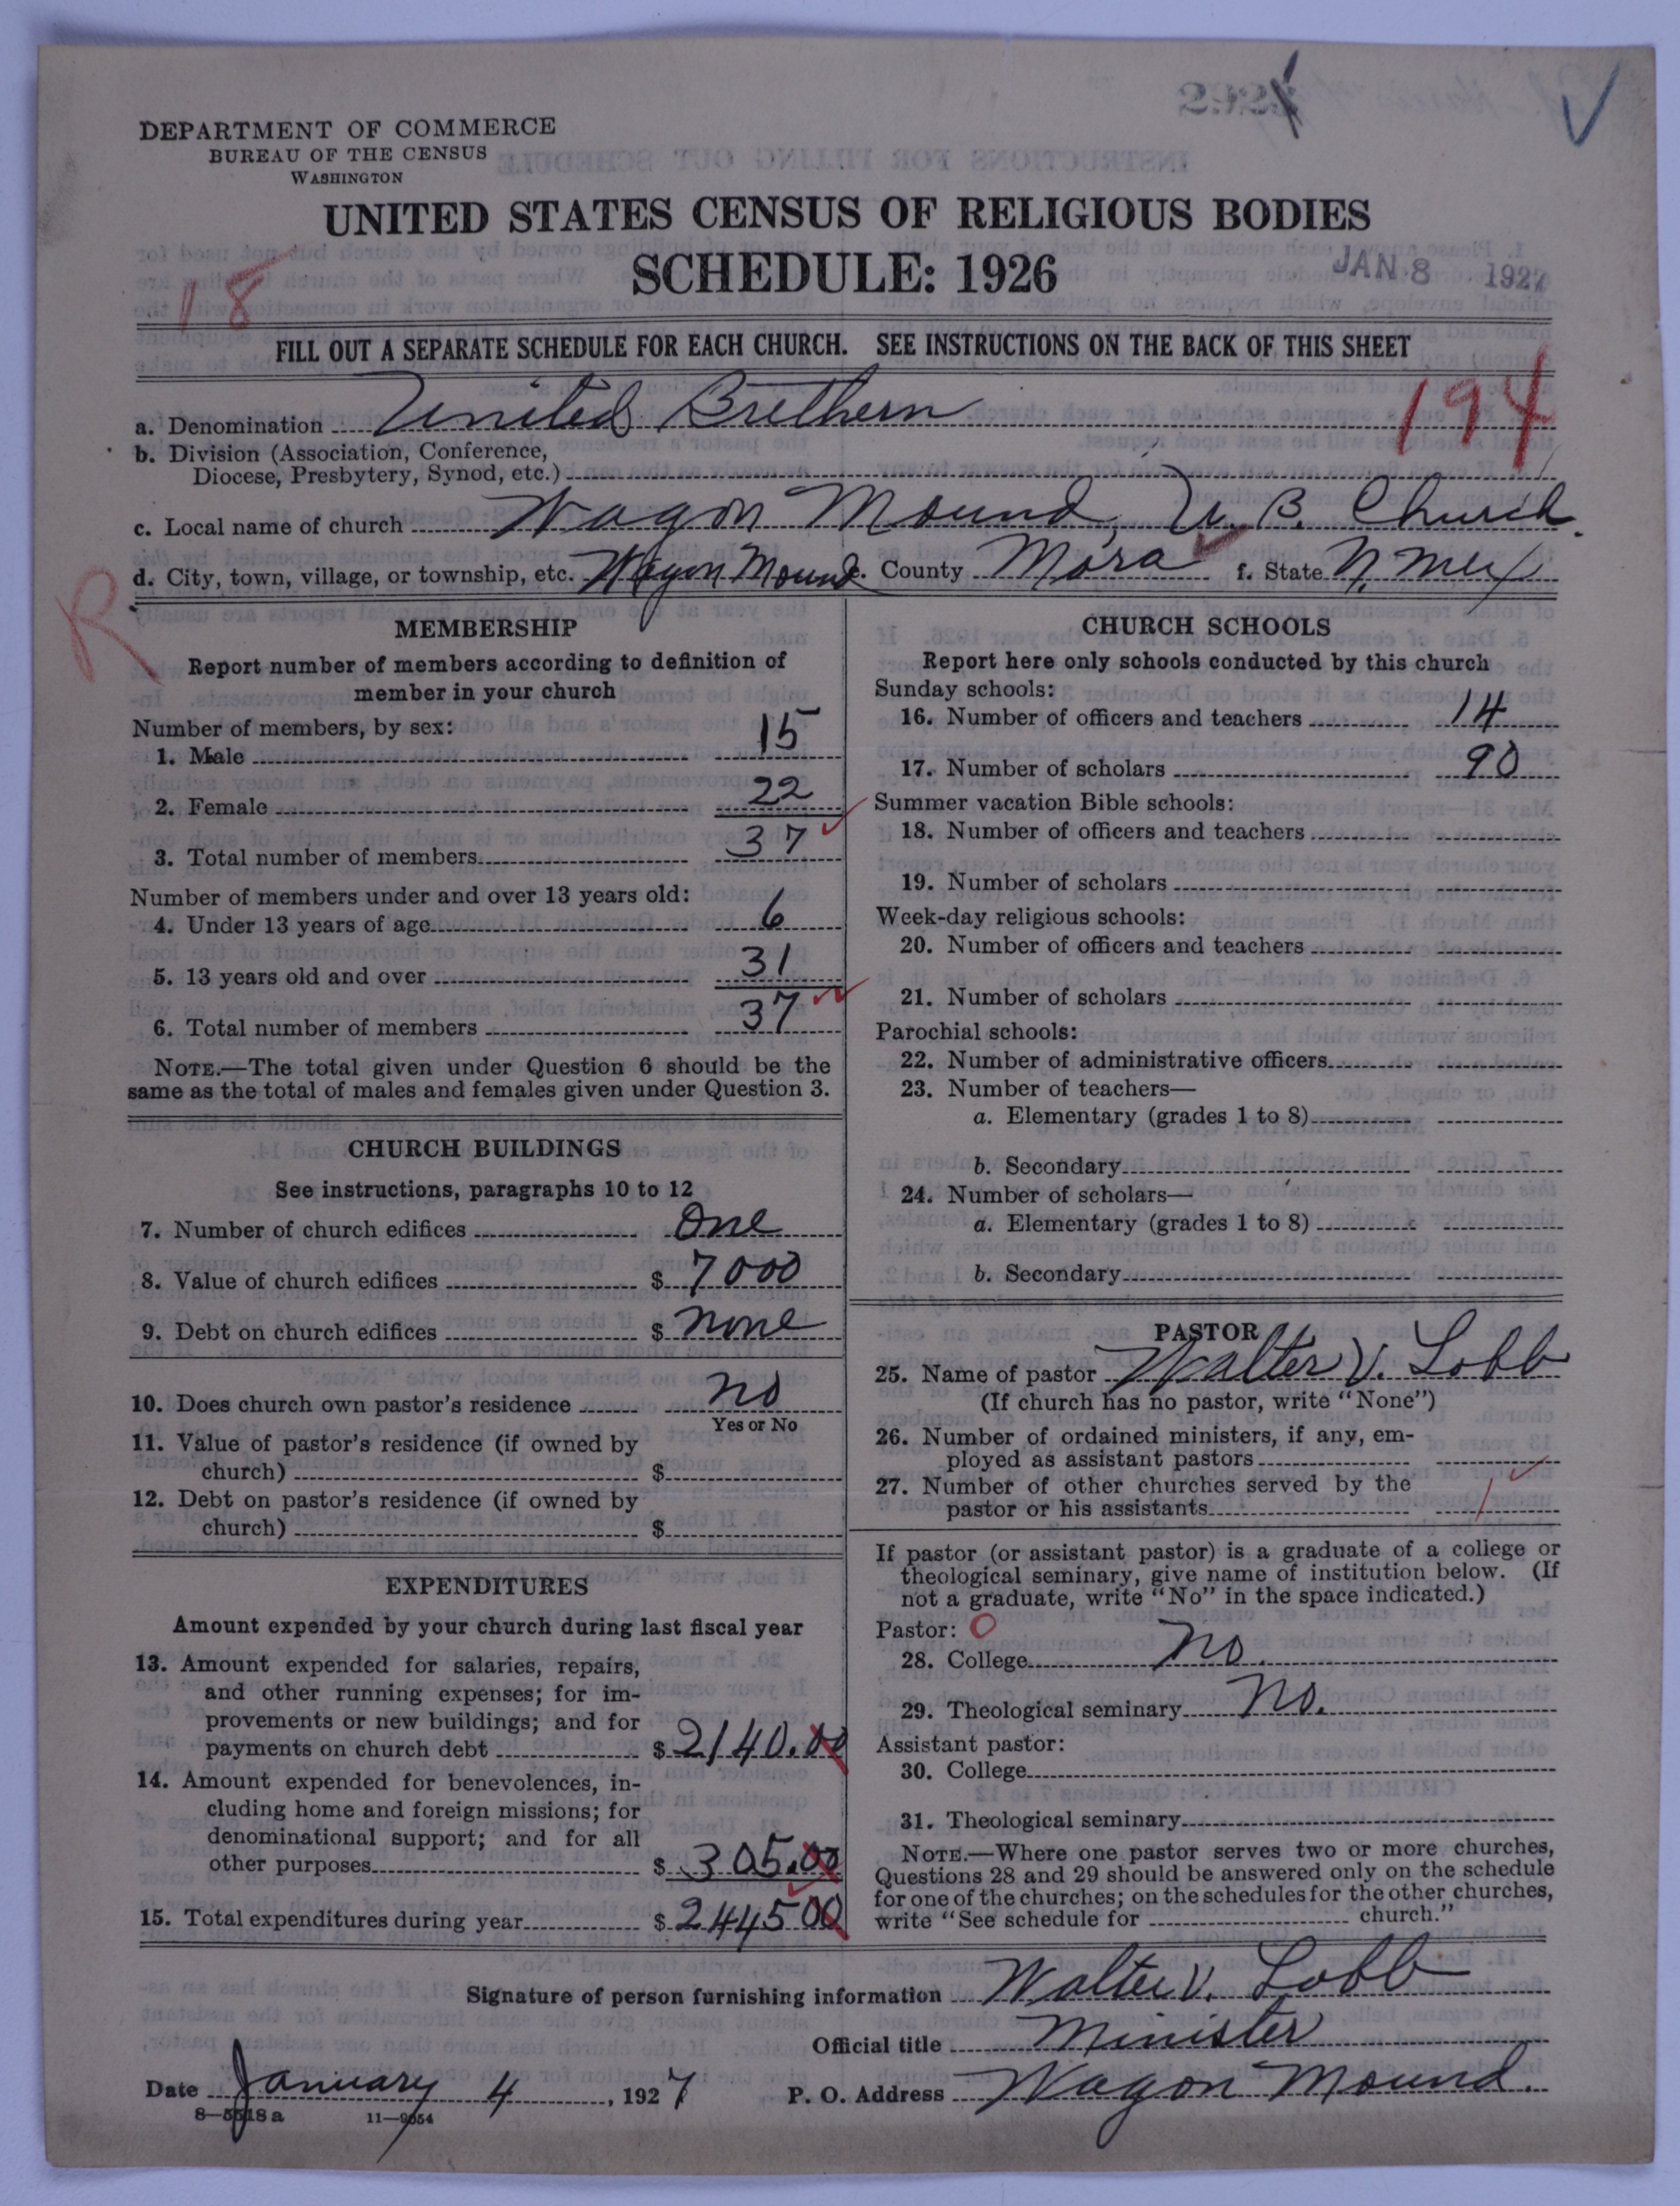 DEPARTMENT OF COMMERCE
BUREAU OF THE CENSUS
WASHINGTON
UNITED STATES CENSUS OF RELIGIOUS BODIES
SCHEDULE: 1926
JAN 8 1927
18
FILL OUT A SEPARATE SCHEDULE FOR EACH CHURCH. SEE INSTRUCTIONS ON THE BACK OF THIS SHEET
194
a. Denomination United Brethern
b. Division (Association, Conference,
Diocese, Presbytery, Synod, etc.)
c. Local name of church Wagon Mound, U. B. Church.
d. City, town, village, or township, etc. Wagon Mound e. County Mora f. State N. Mex
R
MEMBERSHIP
Report number of members according to definition of
member in your church
Number of members, by sex:
1. Male 15
2. Female 22
3. Total number of members 37
Number of members under and over 13 years old:
4. Under 13 years of age 6
5. 13 years old and over 31
6. Total number of members 37
NOTE.—The total given under Question 6 should be the
same as the total of males and females given under Question 3.
CHURCH BUILDINGS
See instructions, paragraphs 10 to 12
7. Number of church edifices One
8. Value of church edifices $ 7000
9. Debt on church edifices $ None
10. Does church own pastor's residence No
Yes or No
11. Value of pastor's residence (if owned by
church) $
12. Debt on pastor's residence (if owned by
church) $
EXPENDITURES
Amount expended by your church during last fiscal year
13. Amount expended for salaries, repairs,
and other running expenses; for im-
provements or new buildings; and for
payments on church debt $ 2140.00
14. Amount expended for benevolences, in-
cluding home and foreign missions; for
denominational support; and for all
other purposes $ 305.00
15. Total expenditures during year $ 2445 00
CHURCH SCHOOLS
Report here only schools conducted by this church
Sunday schools:
16. Number of officers and teachers 14
17. Number of scholars 90
Summer vacation Bible schools:
18. Number of officers and teachers
19. Number of scholars
Week-day religious schools:
20. Number of officers and teachers
21. Number of scholars
Parochial schools:
22. Number of administrative officers
23. Number of teachers—
a. Elementary (grades 1 to 8)
b. Secondary
24. Number of scholars—
a. Elementary (grades 1 to 8)
b. Secondary
PASTOR
25. Name of pastor Walter V. Lobb
(If church has no pastor, write "None")
26. Number of ordained ministers, if any, em-
ployed as assistant pastors
27. Number of other churches served by the
pastor or his assistants 1
If pastor (or assistant pastor) is a graduate of a college or
theological seminary, give name of institution below. (If
not a graduate, write "No" in the space indicated.)
Pastor: 0
28. College No.
29. Theological seminary No.
Assistant pastor:
30. College
31. Theological seminary
NOTE.—Where one pastor serves two or more churches,
Questions 28 and 29 should be answered only on the schedule
for one of the churches; on the schedules for the other churches,
write "See schedule for church."
Signature of person furnishing information Walter V. Lobb
Official title Minister
Date January 4, 1927 P. O. Address Wagon Mound.
8—5518 a 11—9054